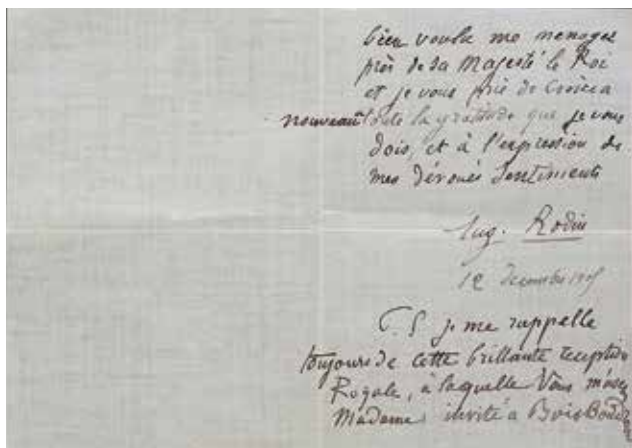 bien voulu me ménager
près de sa Majesté le Roi
et je vous prie de croire a
nouveau toute la gratitude que je vous
dois, et à l'expression de
mes dévoués sentiments
Aug. Rodin
12 decembre
P.S je me rappelle
toujours de cette brillante reception
Royale, a laquelle Vous m'aviez
Madame invité a